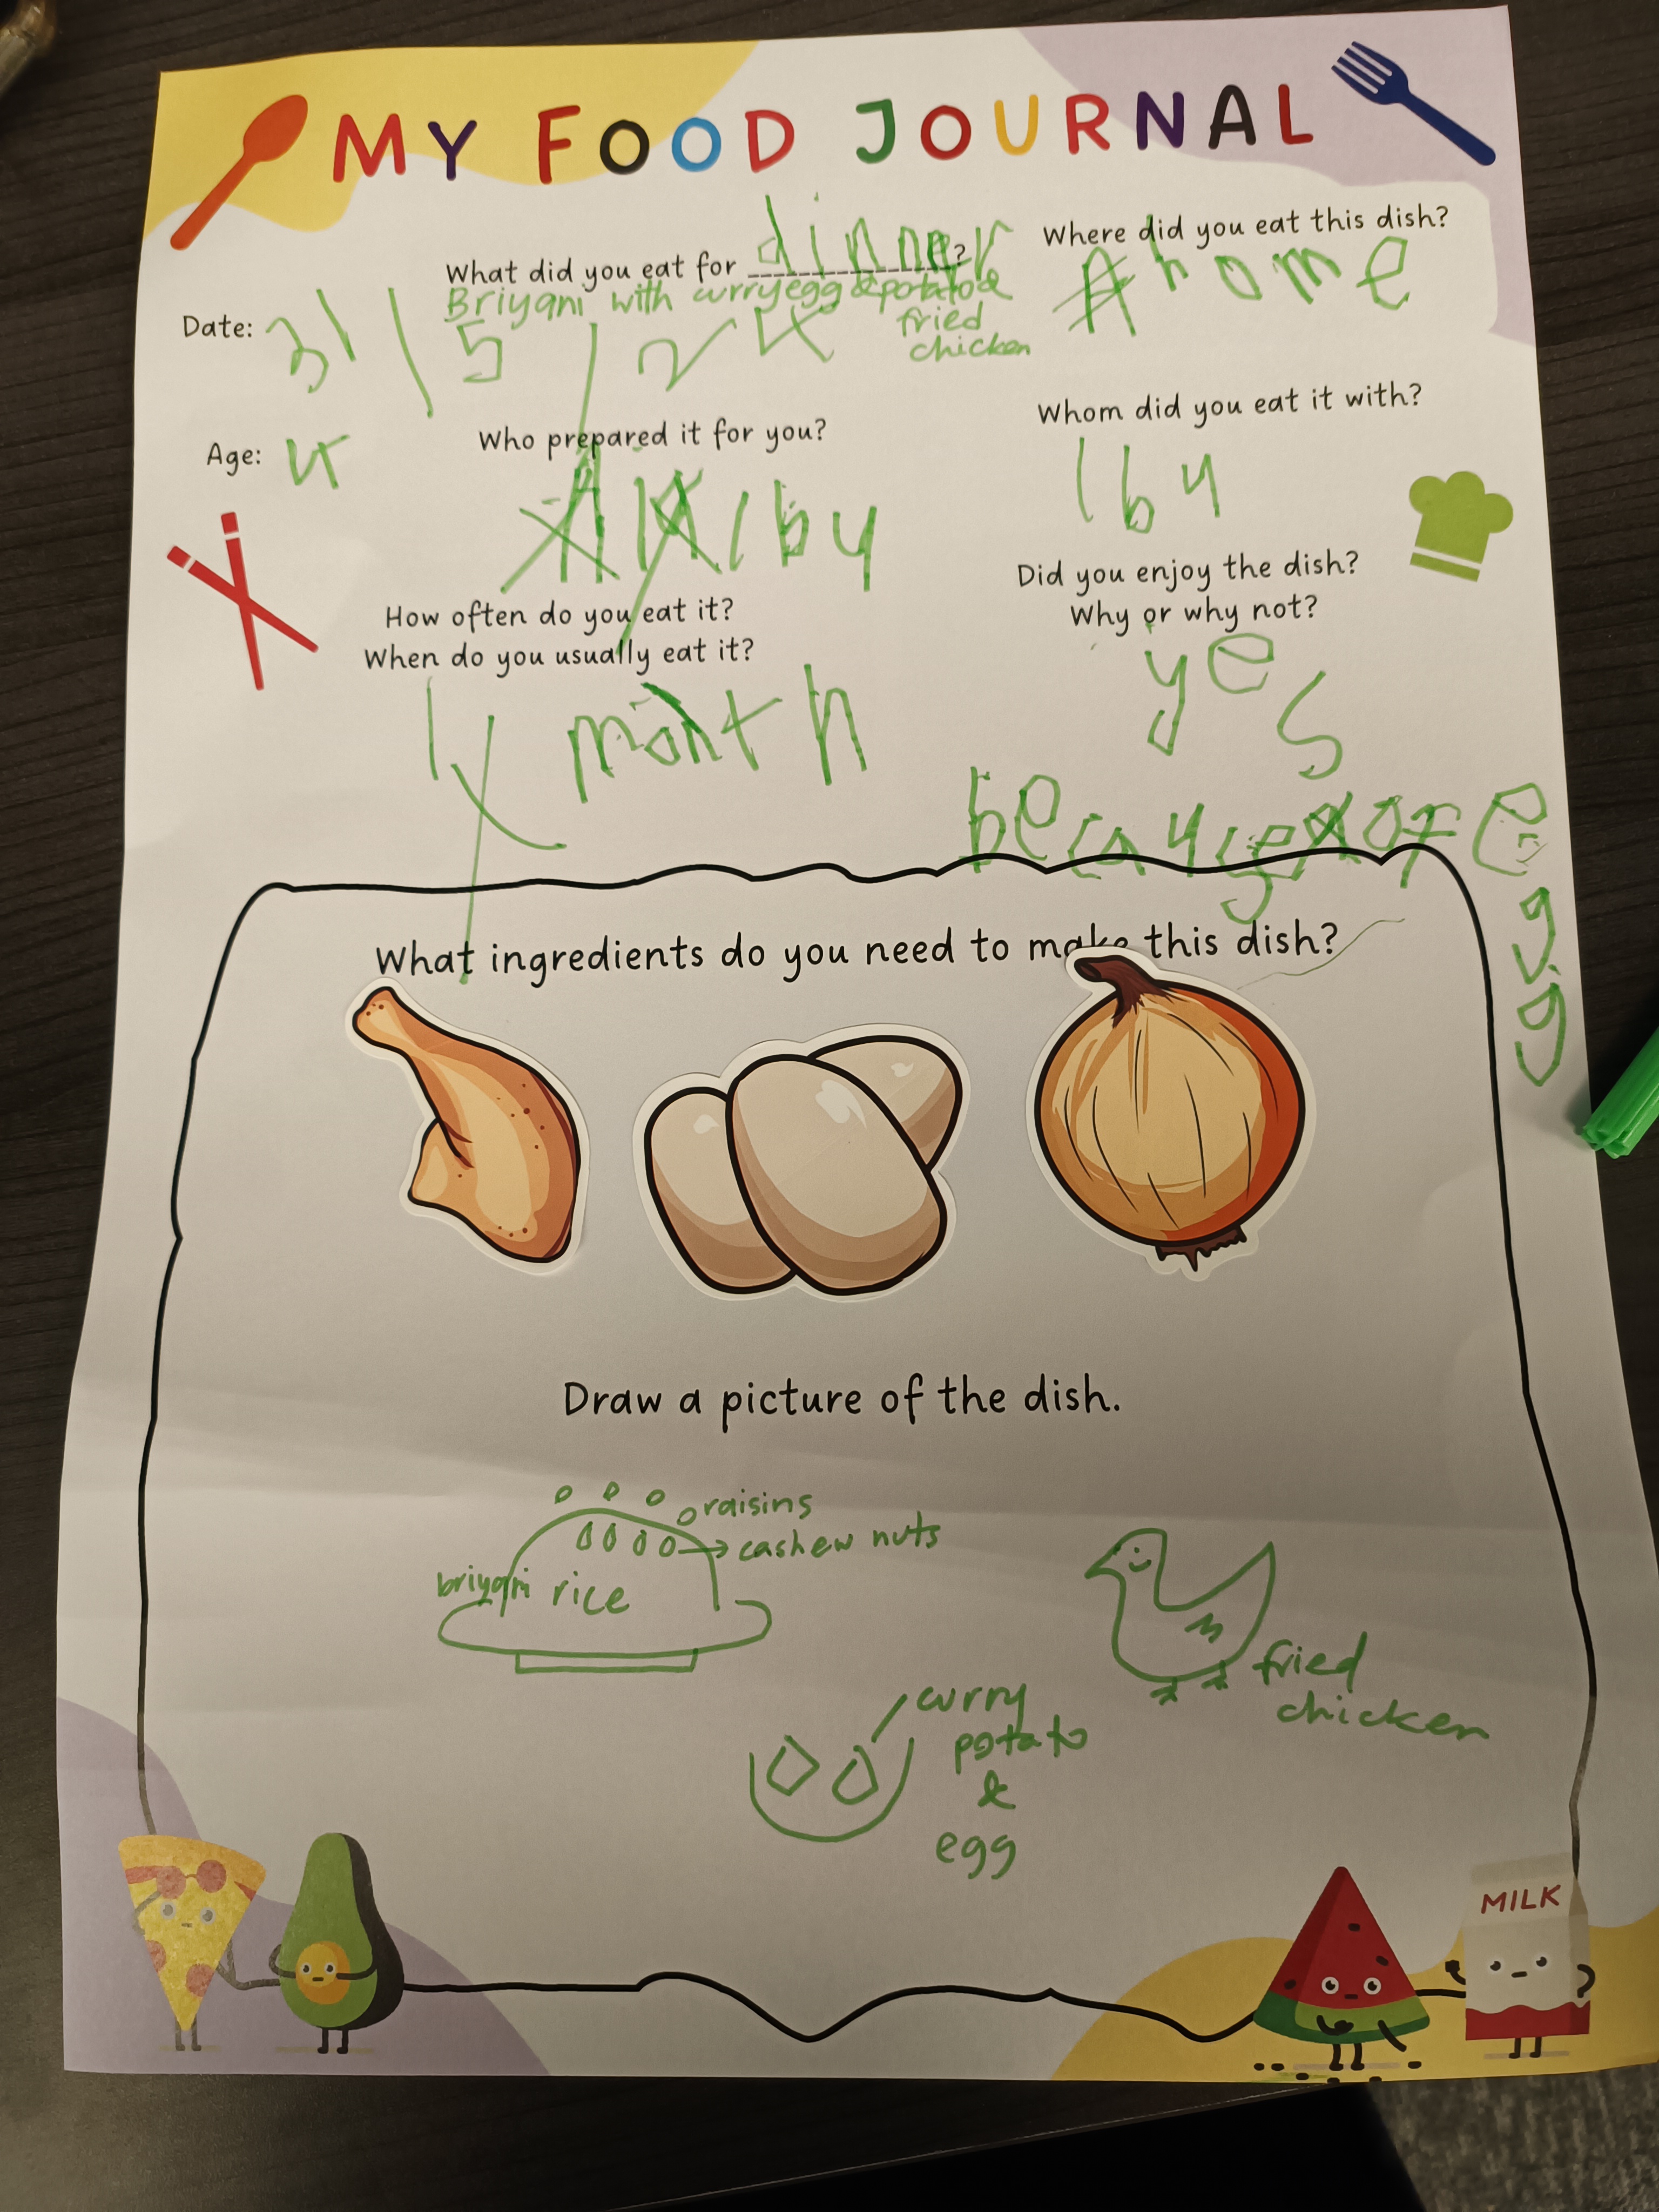 MY FOOD JOURNAL
What did you eat for dinner?
Briyani with curry egg & potato &
fried
chicken
Where did you eat this dish?
home
Date: 31/5/24
Age: 4
Who prepared it for you?
Ibu
Whom did you eat it with?
Ibu
How often do you eat it?
When do you usually eat it?
1x month
Did you enjoy the dish?
Why or why not?
yes
because of egg
What ingredients do you need to make this dish?
Draw a picture of the dish.
raisins
cashew nuts
briyani rice
fried
chicken
curry
potato
&
egg
MILK